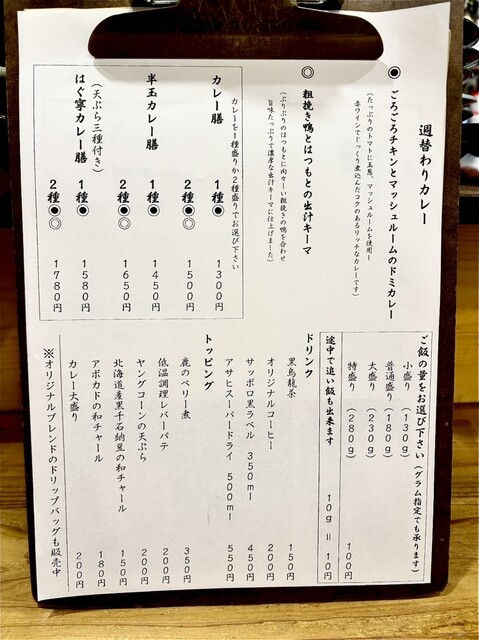 週替わりカレー
◉ごろごろチキンとマッシュルームのドミカレー
(たっぷりのトマトに玉葱、マッシュルームを使用ー
赤ワインでじっくり煮込んだコクのあるリッチなカレーです)
◎粗挽き鴨とはつもとの出汁キーマ
(ぷりぷりのはつもとに肉々ーい粗挽きの鴨を合わせ
旨味たっぷりで濃厚な出汁キーマに仕上げました)
カレーを1種盛りか2種盛りでお選び下さい
カレー膳 1種◉ 1300円
2種◉◎ 1500円
半玉カレー膳 1種◉ 1450円
2種◉◎ 1650円
(天ぷら三種付き)
はぐ寧カレー膳 1種◉ 1580円
2種◉◎ 1780円
ご飯の量をお選び下さい(グラム指定でも承ります)
小盛り(130g)
普通盛り(180g)
大盛り(230g)
特盛り(280g) 100円
途中で追い飯も出来ます 10g=10円
ドリンク
黒烏龍茶 150円
オリジナルコーヒー 200円
サッポロ黒ラベル 350ml 450円
アサヒスーパードライ 500ml 550円
トッピング
鹿のベリー煮 350円
低温調理レバーパテ 200円
ヤングコーンの天ぷら 200円
北海道産黒千石納豆の和チャール 150円
アボカドの和チャール 180円
カレー大盛り 200円
※オリジナルブレンドのドリップバッグも販売中